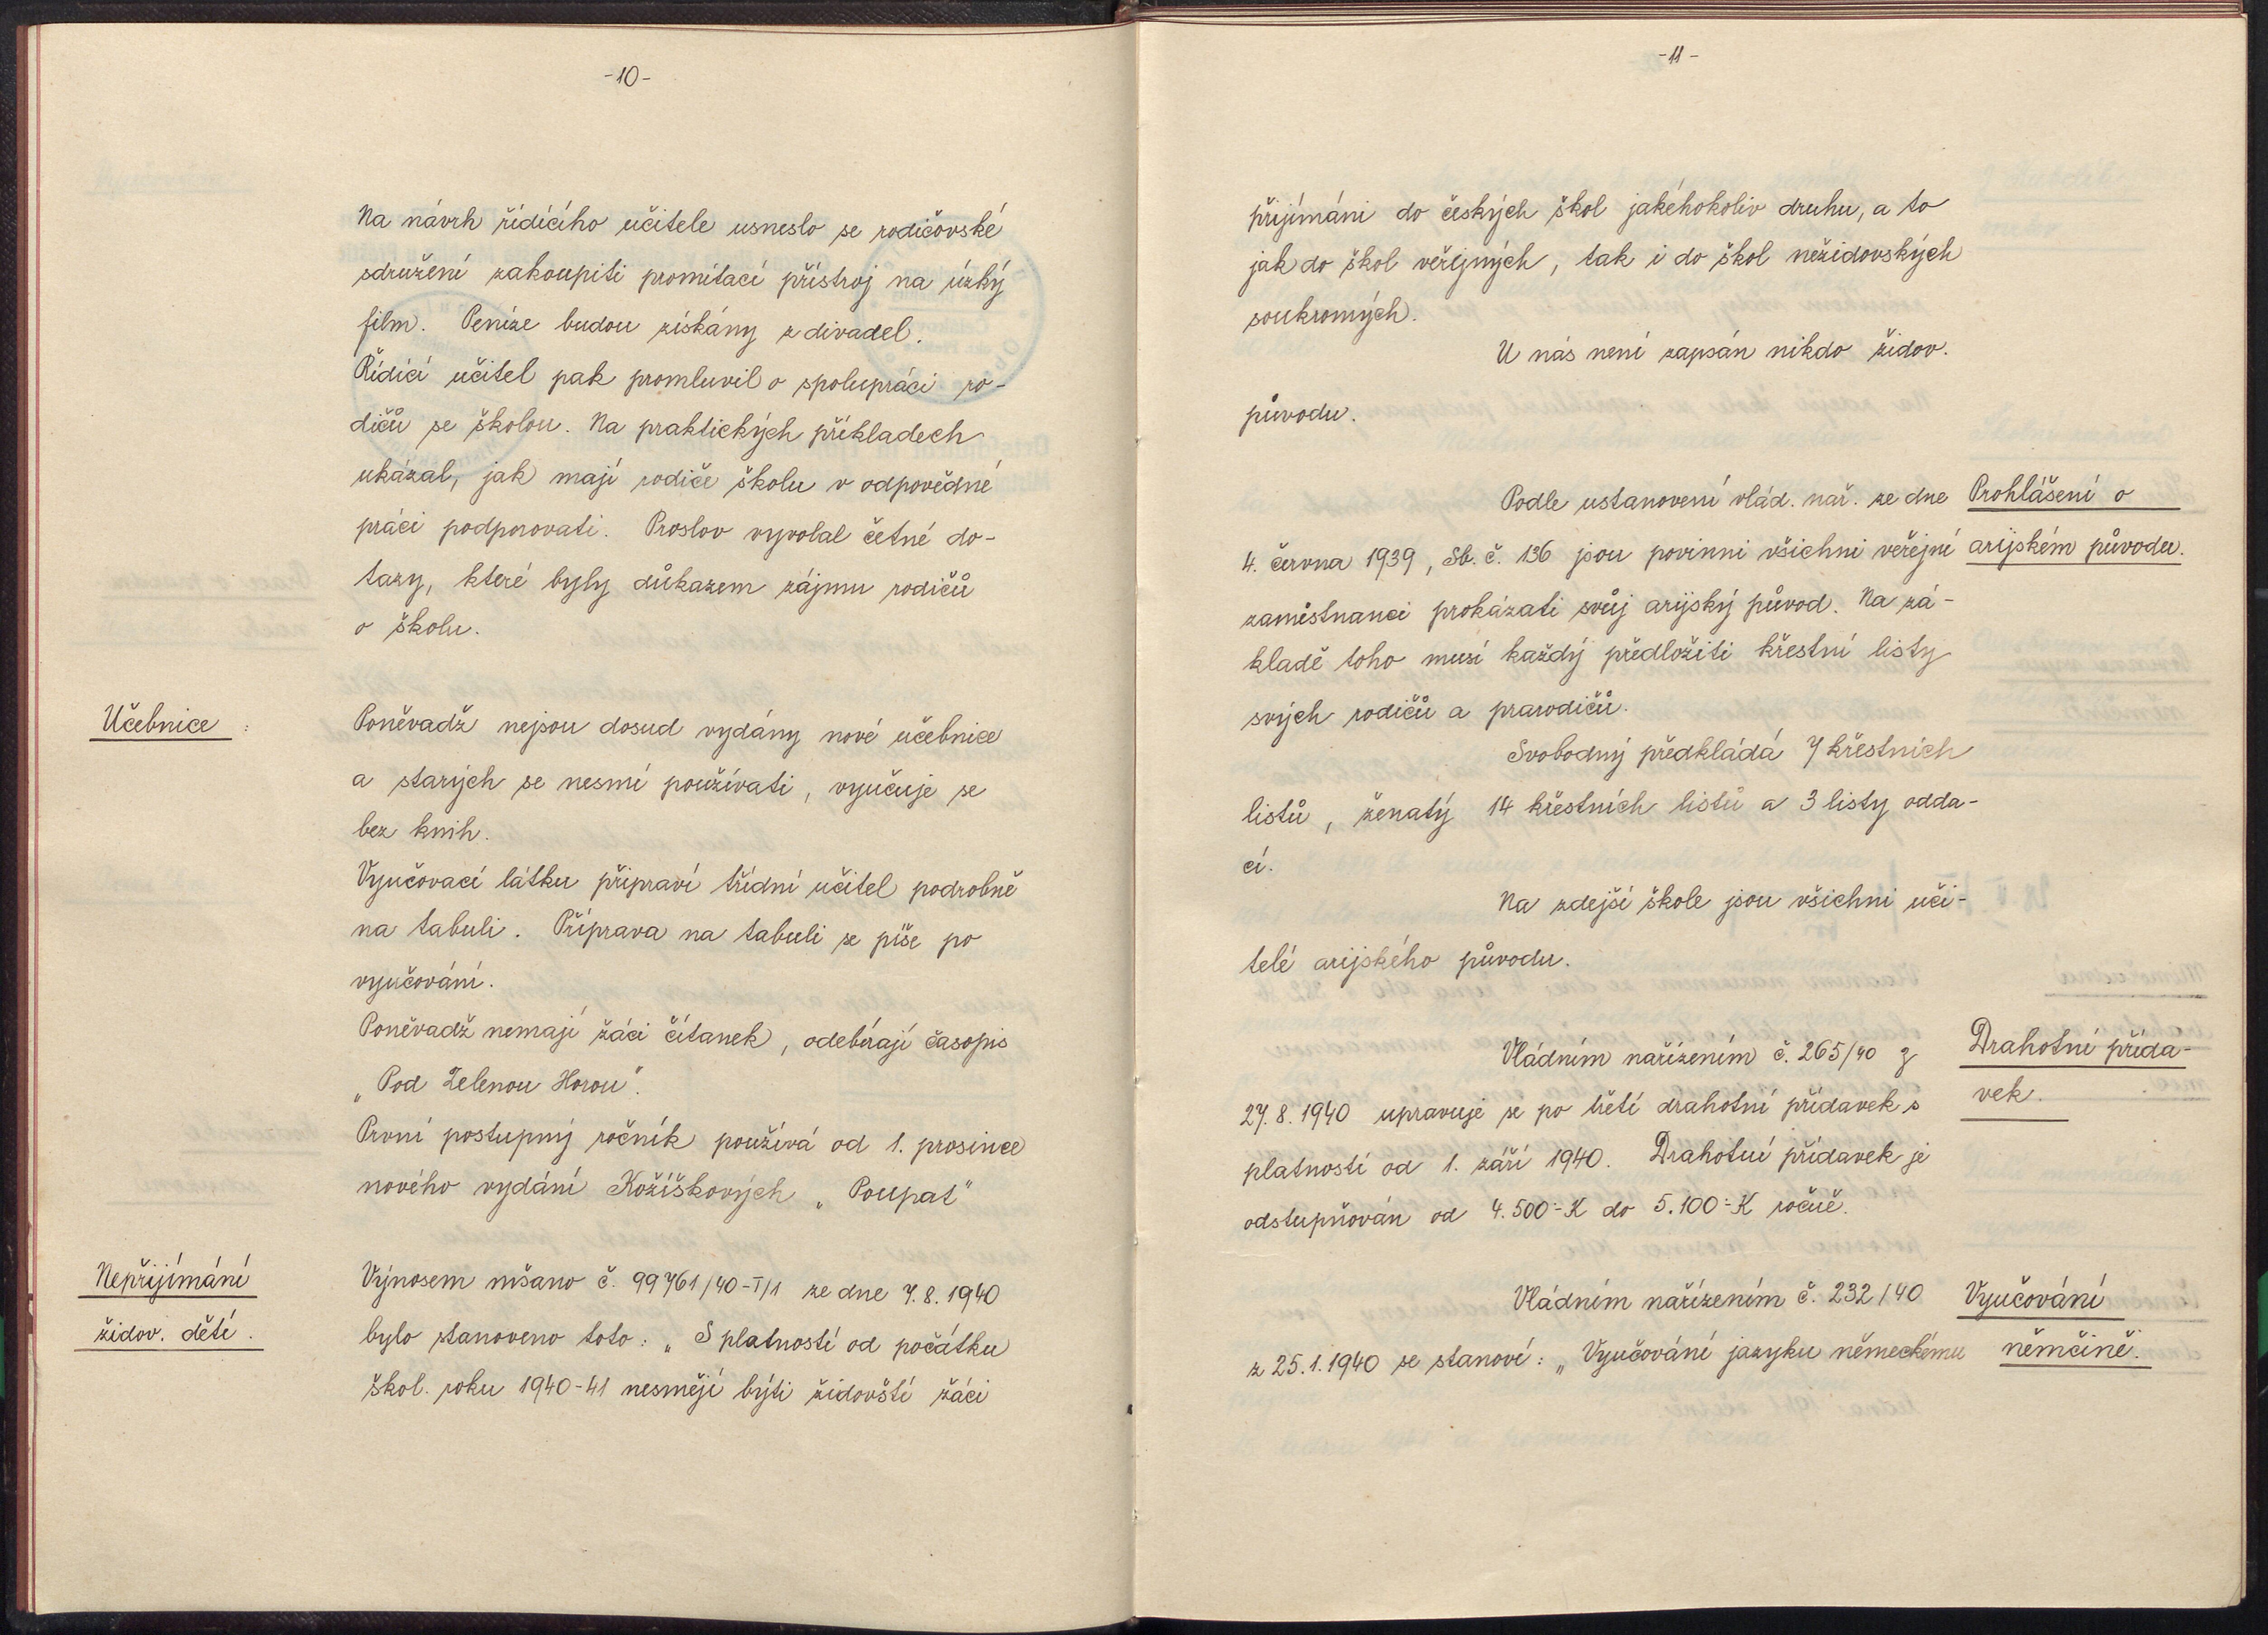 -10-
Na návrh řídícího učitele usneslo se rodičovské
sdružení zakoupiti promítací přístroj na úzký
film. Peníze budou získány z divadel.
Řídící učitel pak promluvil o spolupráci ro-
dičů se školou. Na praktických příkladech
ukázal, jak mají rodiče školu v odpovědné
práci podporovati. Proslov vyvolal četné do-
tazy, které byly důkazem zájmu rodičů
o školu.
Učebnice :
Poněvadž nejsou dosud vydány nové učebnice
a starých se nesmí používati, vyučuje se
bez knih.
Vyučovací látku připraví třídní učitel podrobně
na tabuli. Příprava na tabuli se píše po
vyučování.
Poněvadž nemají žáci čítanek, odebírají časopis
„Pod Zelenou Horou".
První postupný ročník používá od 1. prosince
nového vydání Kožíškových „Poupat"
Nepřijímání
židov. dětí.
Výnosem mšano č. 99761/40-I/1 ze dne 7.8.1940
bylo stanoveno toto: „S platností od počátku
škol. roku 1940-41 nesmějí býti židovští žáci
-11-
přijímáni do českých škol jakéhokoliv druhu, a to
jak do škol veřejných, tak i do škol nežidovských
soukromých.
U nás není zapsán nikdo židov.
původu.
Prohlášení o
arijském původu.
Podle ustanovení vlád. nař. ze dne
4. června 1939, Sb. č. 136 jsou povinni všichni veřejní
zaměstnanci prokázati svůj arijský původ. Na zá-
kladě toho musí každý předložiti křestní listy
svých rodičů a prarodičů.
Svobodný předkládá 7 křestních
listů, ženatý 14 křestních listů a 3 listy odda-
cí.
Na zdejší škole jsou všichni uči-
telé arijského původu.
Drahotní přída-
vek.
Vládním nařízením č. 265/40 z
27.8.1940 upravuje se po třetí drahotní přídavek s
platností od 1. září 1940. Drahotní přídavek je
odstupňován od 4.500·-K do 5.100·-K ročně.
Vyučování
němčině.
Vládním nařízením č. 232/40
z 25.1.1940 se stanoví: „Vyučování jazyku německému